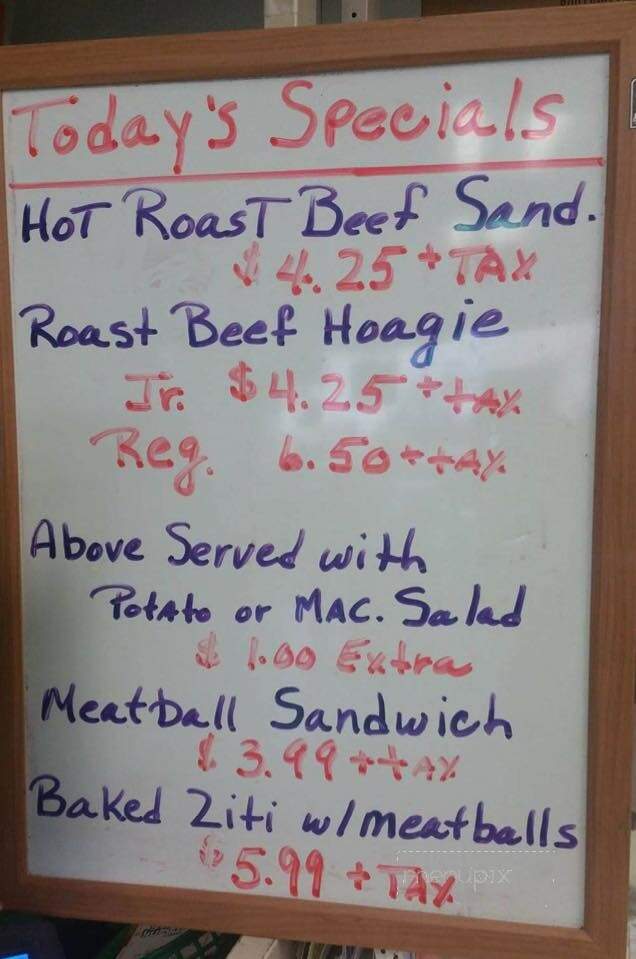 Today's Specials
Hot Roast Beef Sand.
$4.25 + TAX
Roast Beef Hoagie
Jr. $4.25 + tax
Reg. 6.50 + tax
Above Served with
Potato or Mac. Salad
$1.00 Extra
Meatball Sandwich
$3.99 + tax
Baked Ziti w/meatballs
$5.99 + TAX
menupix